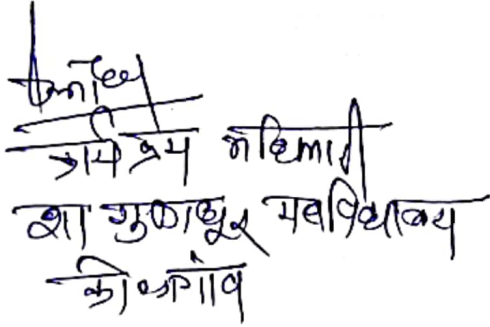 कार्यक्रम अधिकारी
शा गुण्डाधूर महाविद्यालय
कोण्डागांव